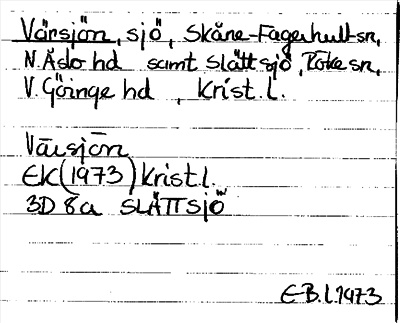 Värsjön, sjö, Skåne-Fagerhult sn,
N. Åsbo hd samt Slättsjö, Röke sn,
V. Göinge hd, Krist. l.
Värsjön
EK (1973) Krist l.
3D 8a SLÄTTSJÖ
E-B. L. 1973